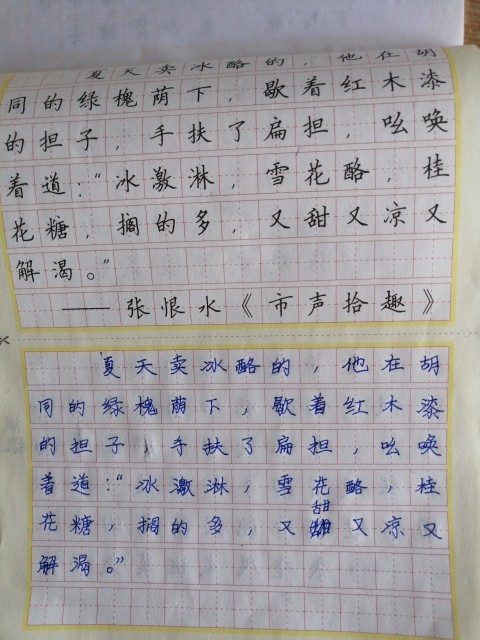 夏天卖冰酪的，他在胡
同的绿槐荫下，歇着红木漆
的担子，手扶了扁担，吆唤
着道：“冰激淋，雪花酪，桂
花糖，搁的多，又甜又凉又
解渴。”
——张恨水《市声拾趣》
夏天卖冰酪的，他在胡
同的绿槐荫下，歇着红木漆
的担子，手扶了扁担，吆唤
着道：“冰激淋，雪花酪，桂
花糖，搁的多，又甜又凉又
解渴。”